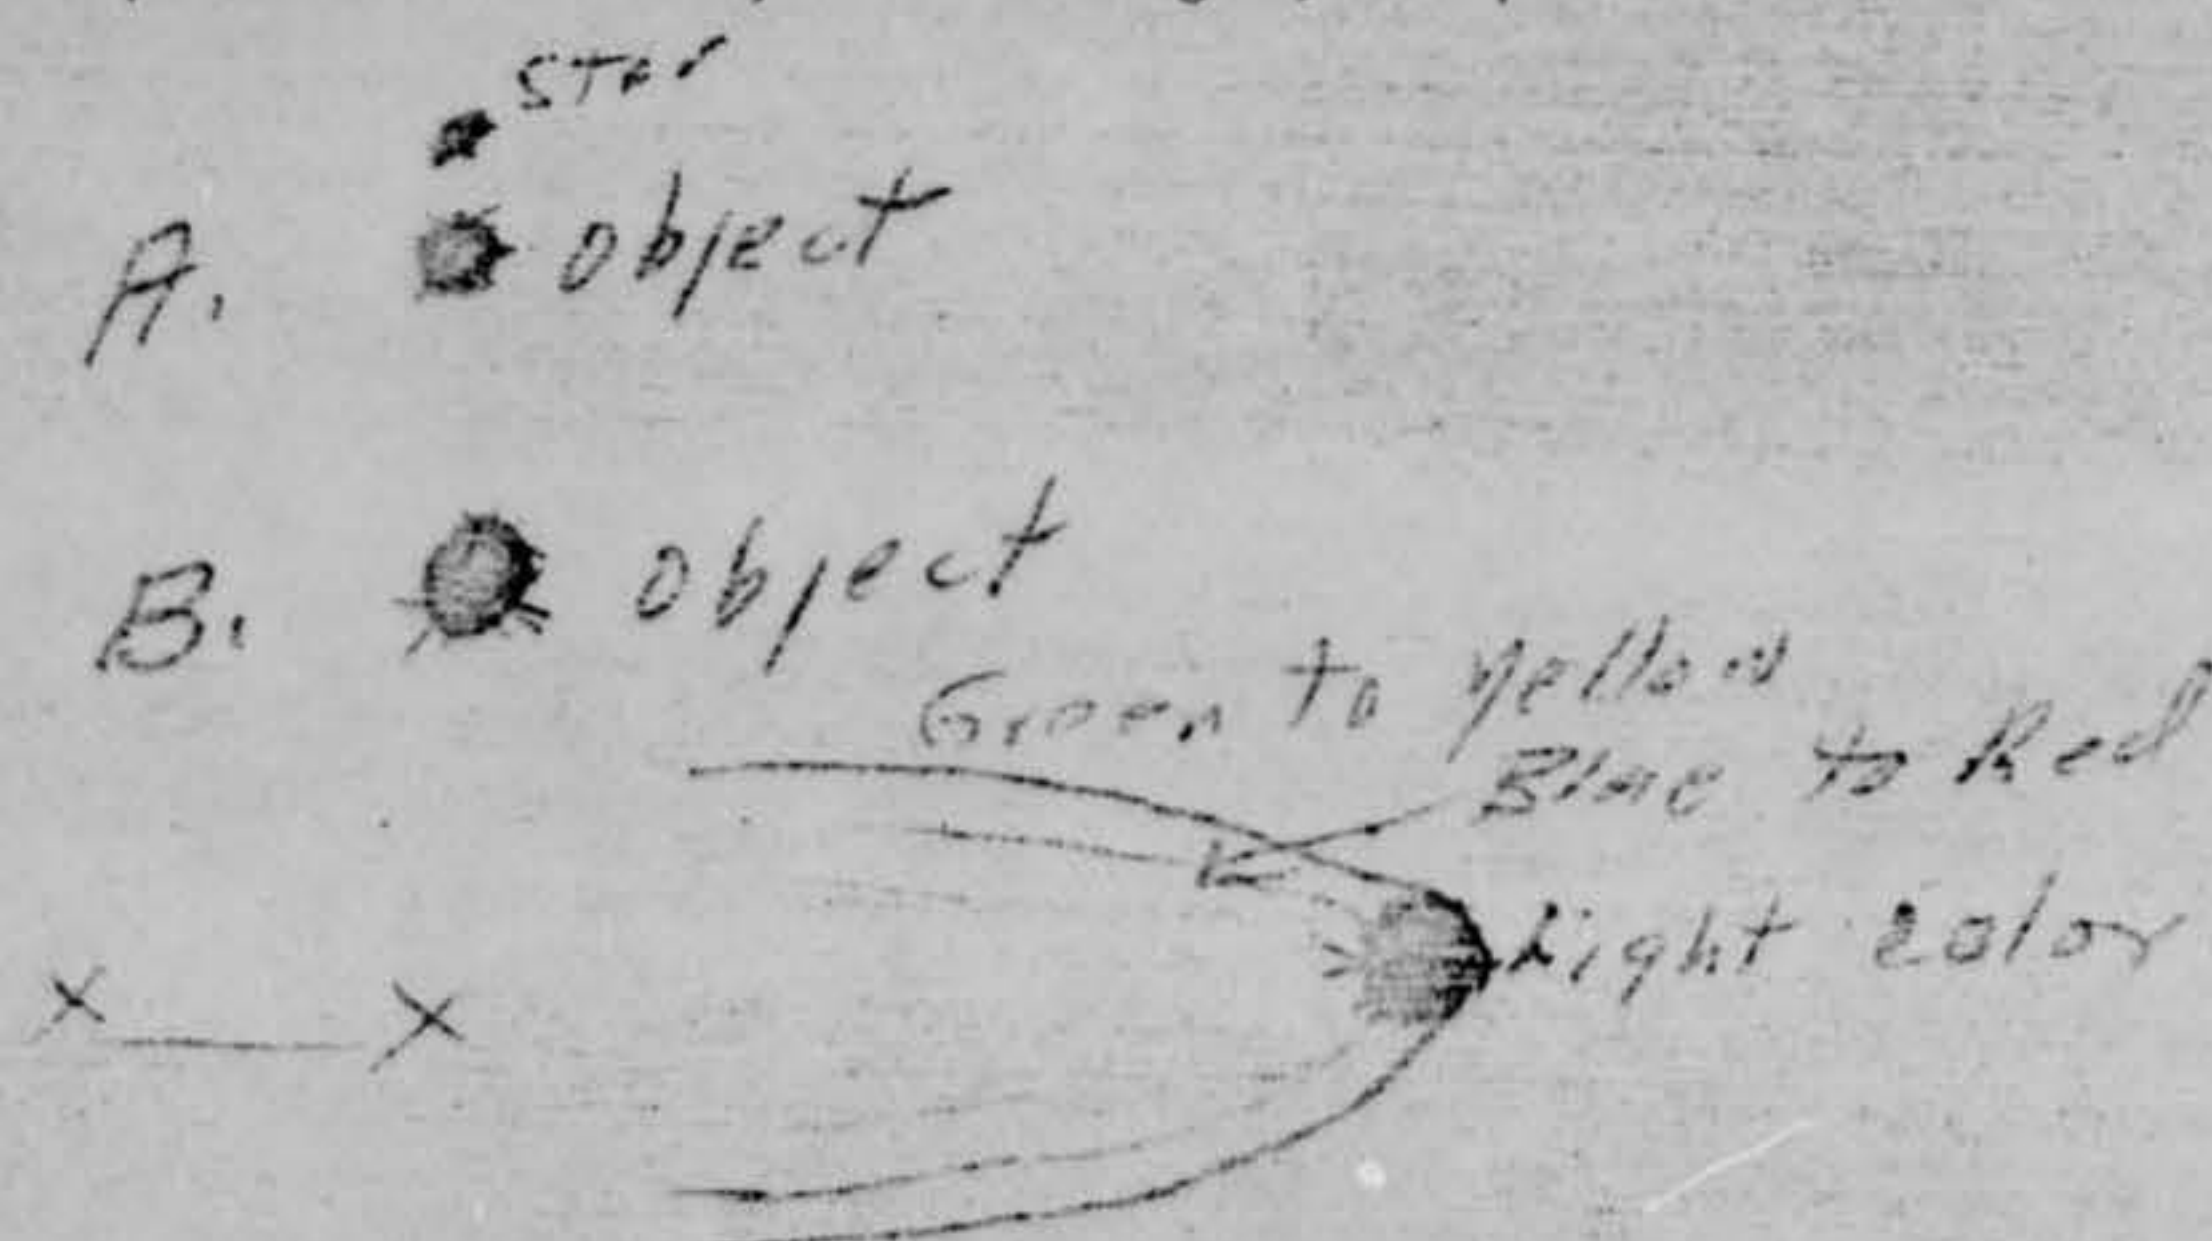 Star
A. object
B. object
Green to yellow
Blue to Red
Light color
X X